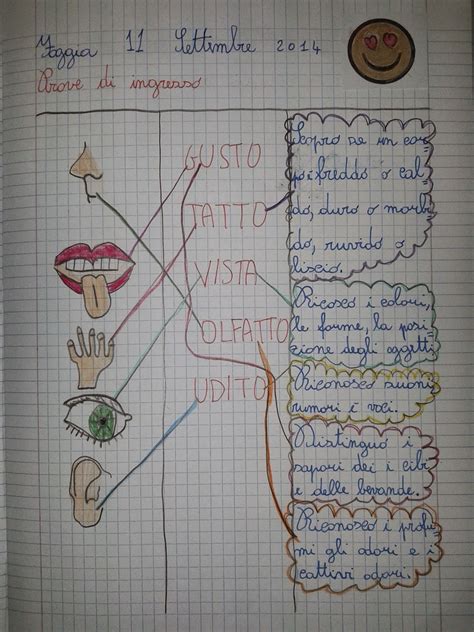 Foggia 11 Settembre 2014
Prove di ingresso
GUSTO
TATTO
VISTA
OLFATTO
UDITO
Scopro se un cor=
po è freddo o cal=
do, duro o morbi=
do, ruvido o
liscio.
Ricosco i colori,
le forme, la posi=
zione degli oggetti
Riconosco suoni
rumori e voci.
Distinguo i
sapori dei i cibi
e delle bevande.
Riconosco i profu=
mi gli odori e i
cattivi odori.